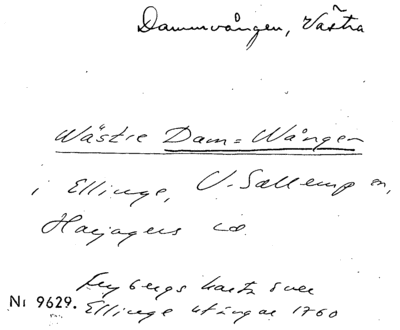 Dammvången, Västra
Wästre Dam=Wången
i Ellinge, V. Sallerup sn,
Harjagers hd.
Rybergs karta över
Ellinge utängar 1760
Nr 9629.